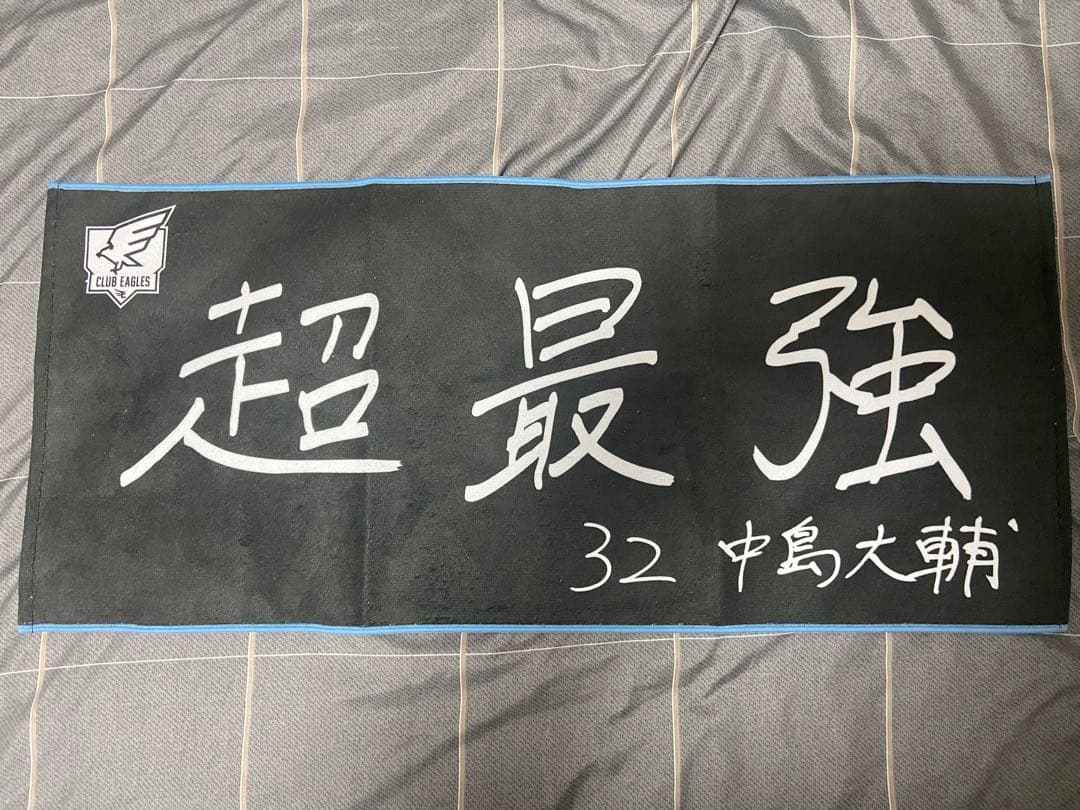 CLUB EAGLES
超最強
32 中島大輔